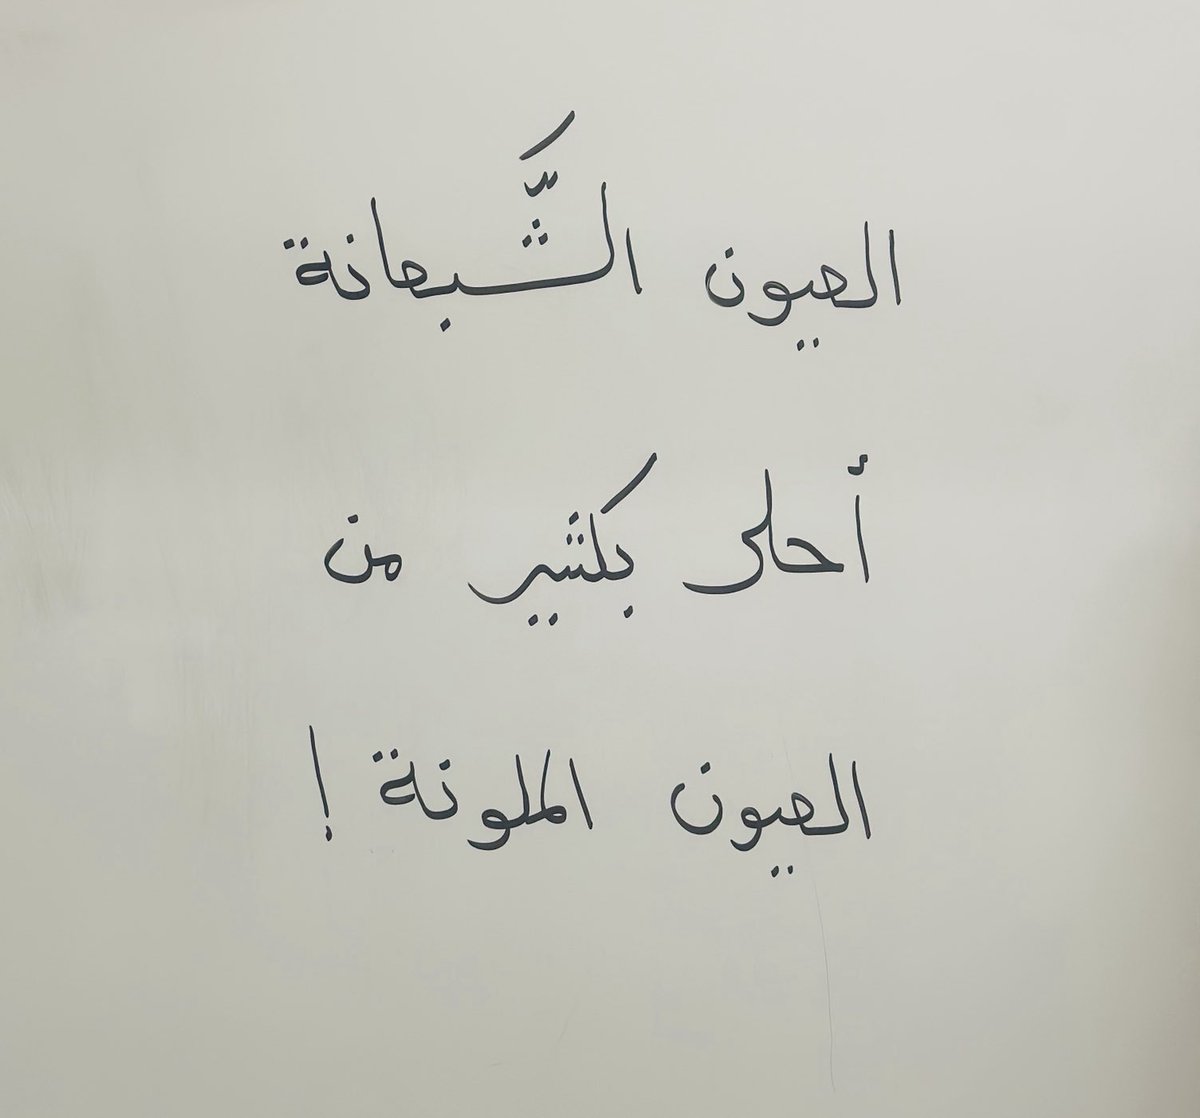 العيون الشَّبعانة
أحلى بكثير من
العيون الملونة !